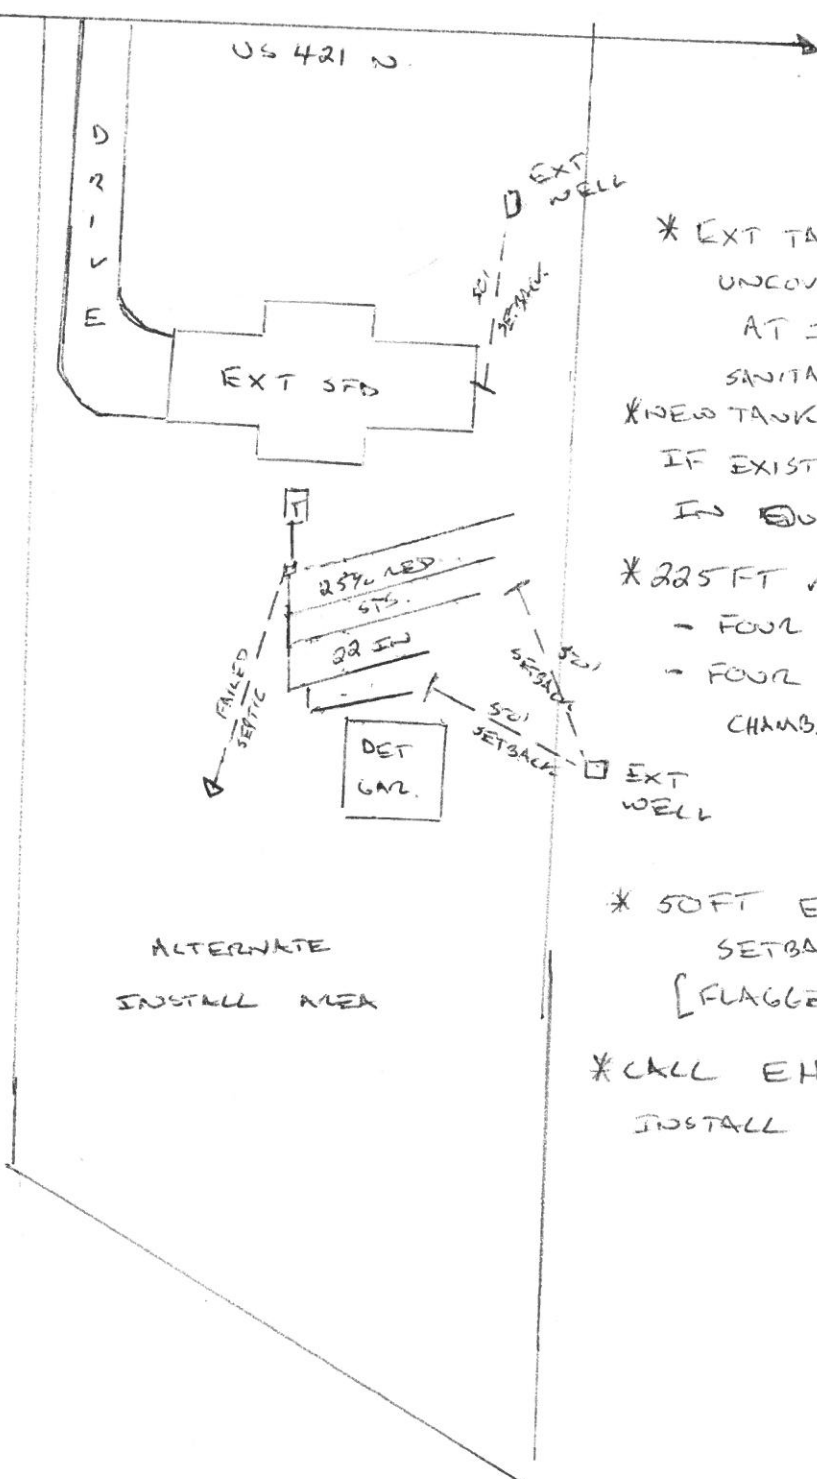 US 421 N.
DRIVE
EXT
WELL
50'
SETBACK
EXT SFD
T
25% RED.
STS.
22 IN
FAILED
SEPTIC
50'
SETBACK
50'
SETBACK
DET
GAR.
EXT
WELL
ALTERNATE
INSTALL AREA
* EXT TA
UNCOV
AT
SANITA
* NEW TANK
IF EXIST
IN EQU
* 225 FT
- FOUR
- FOUR
CHAMB
* 50FT E
SETBA
[FLAGGE
* CALL EH
INSTALL